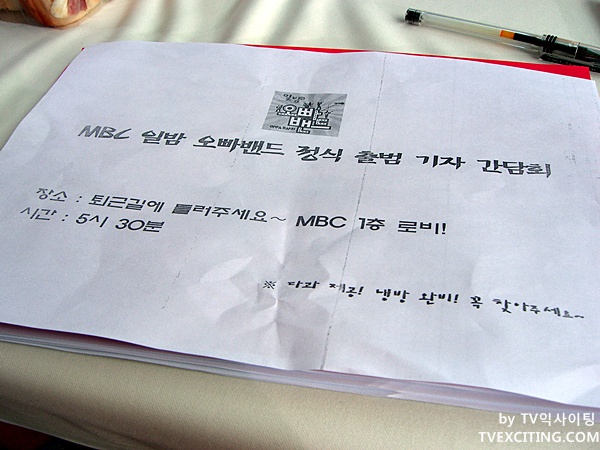 일밤
오빠
밴드
MBC 일밤 오빠밴드 정식 출범 기자 간담회
장소 : 퇴근길에 들러주세요~ MBC 1층 로비!
시간 : 5시 30분
※ 다과 제공! 냉방 완비! 꼭 찾아주세요~
by TV익사이팅
TVEXCITING.COM